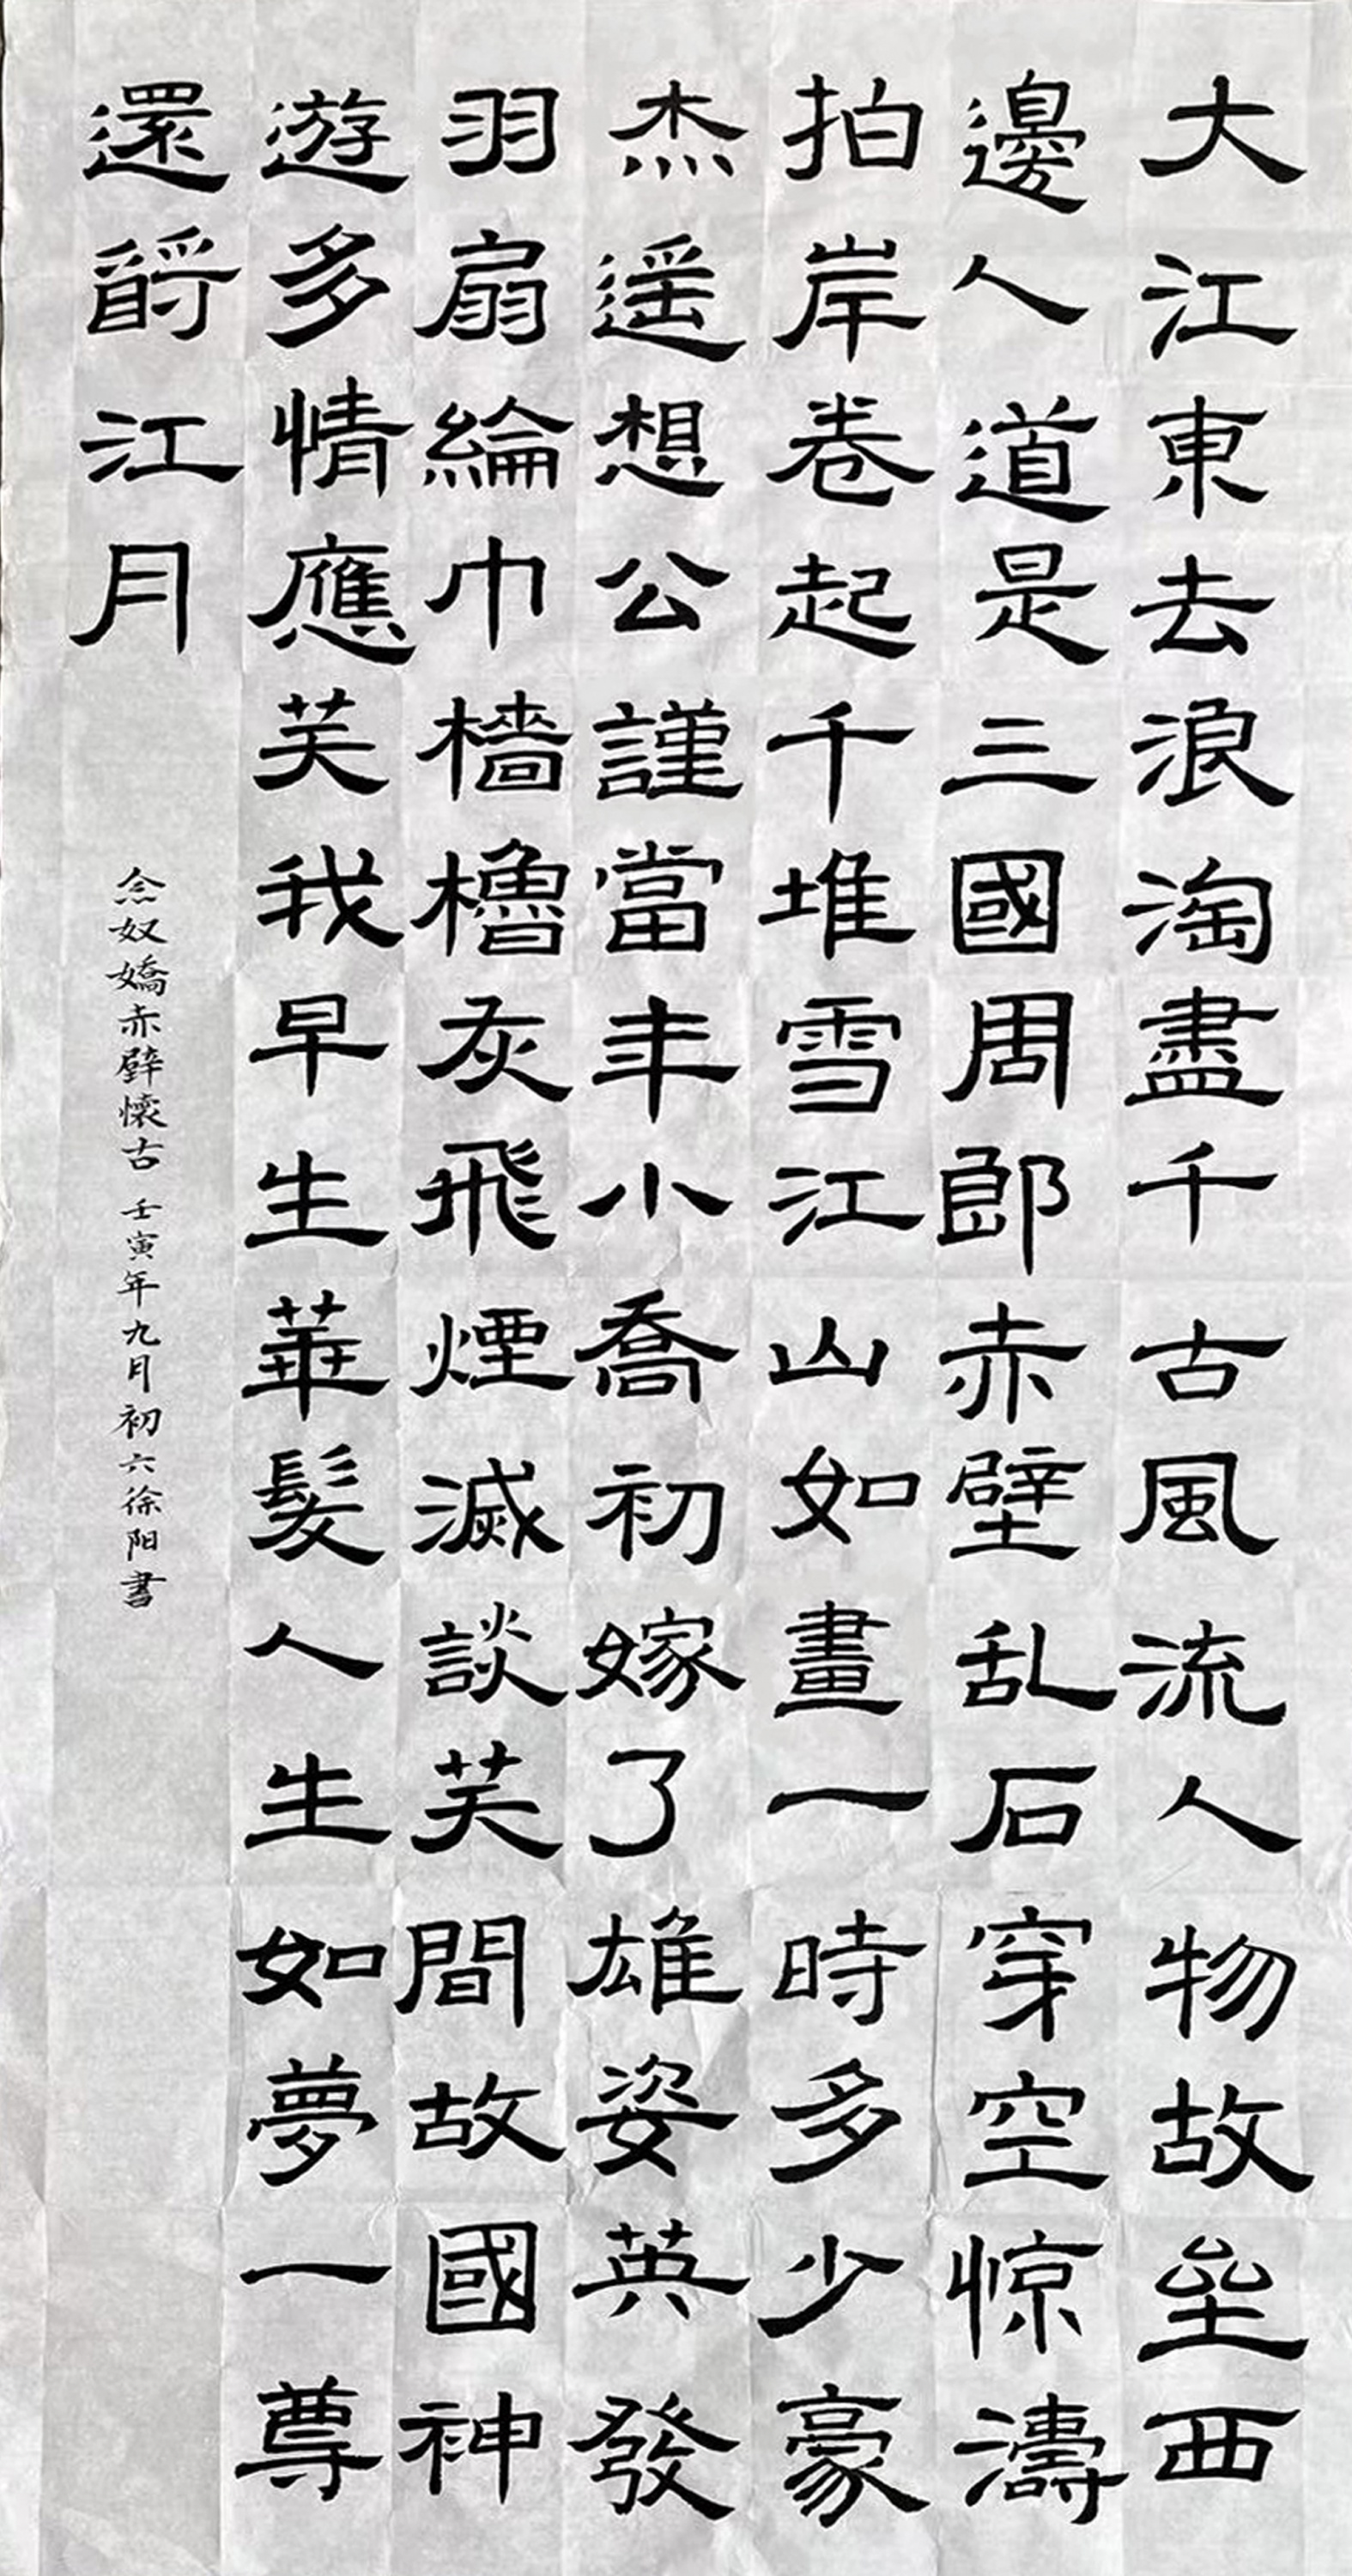 大江東去浪淘盡千古風流人物故垒西
邊人道是三國周郎赤壁乱石穿空惊濤
拍岸卷起千堆雪江山如畫一時多少豪
杰遥想公謹當年小喬初嫁了雄姿英發
羽扇綸巾檣櫓灰飛煙滅談笑間故國神
遊多情應笑我早生華髮人生如夢一尊
還酹江月
念奴嬌赤壁懷古 壬寅年九月初六徐阳書